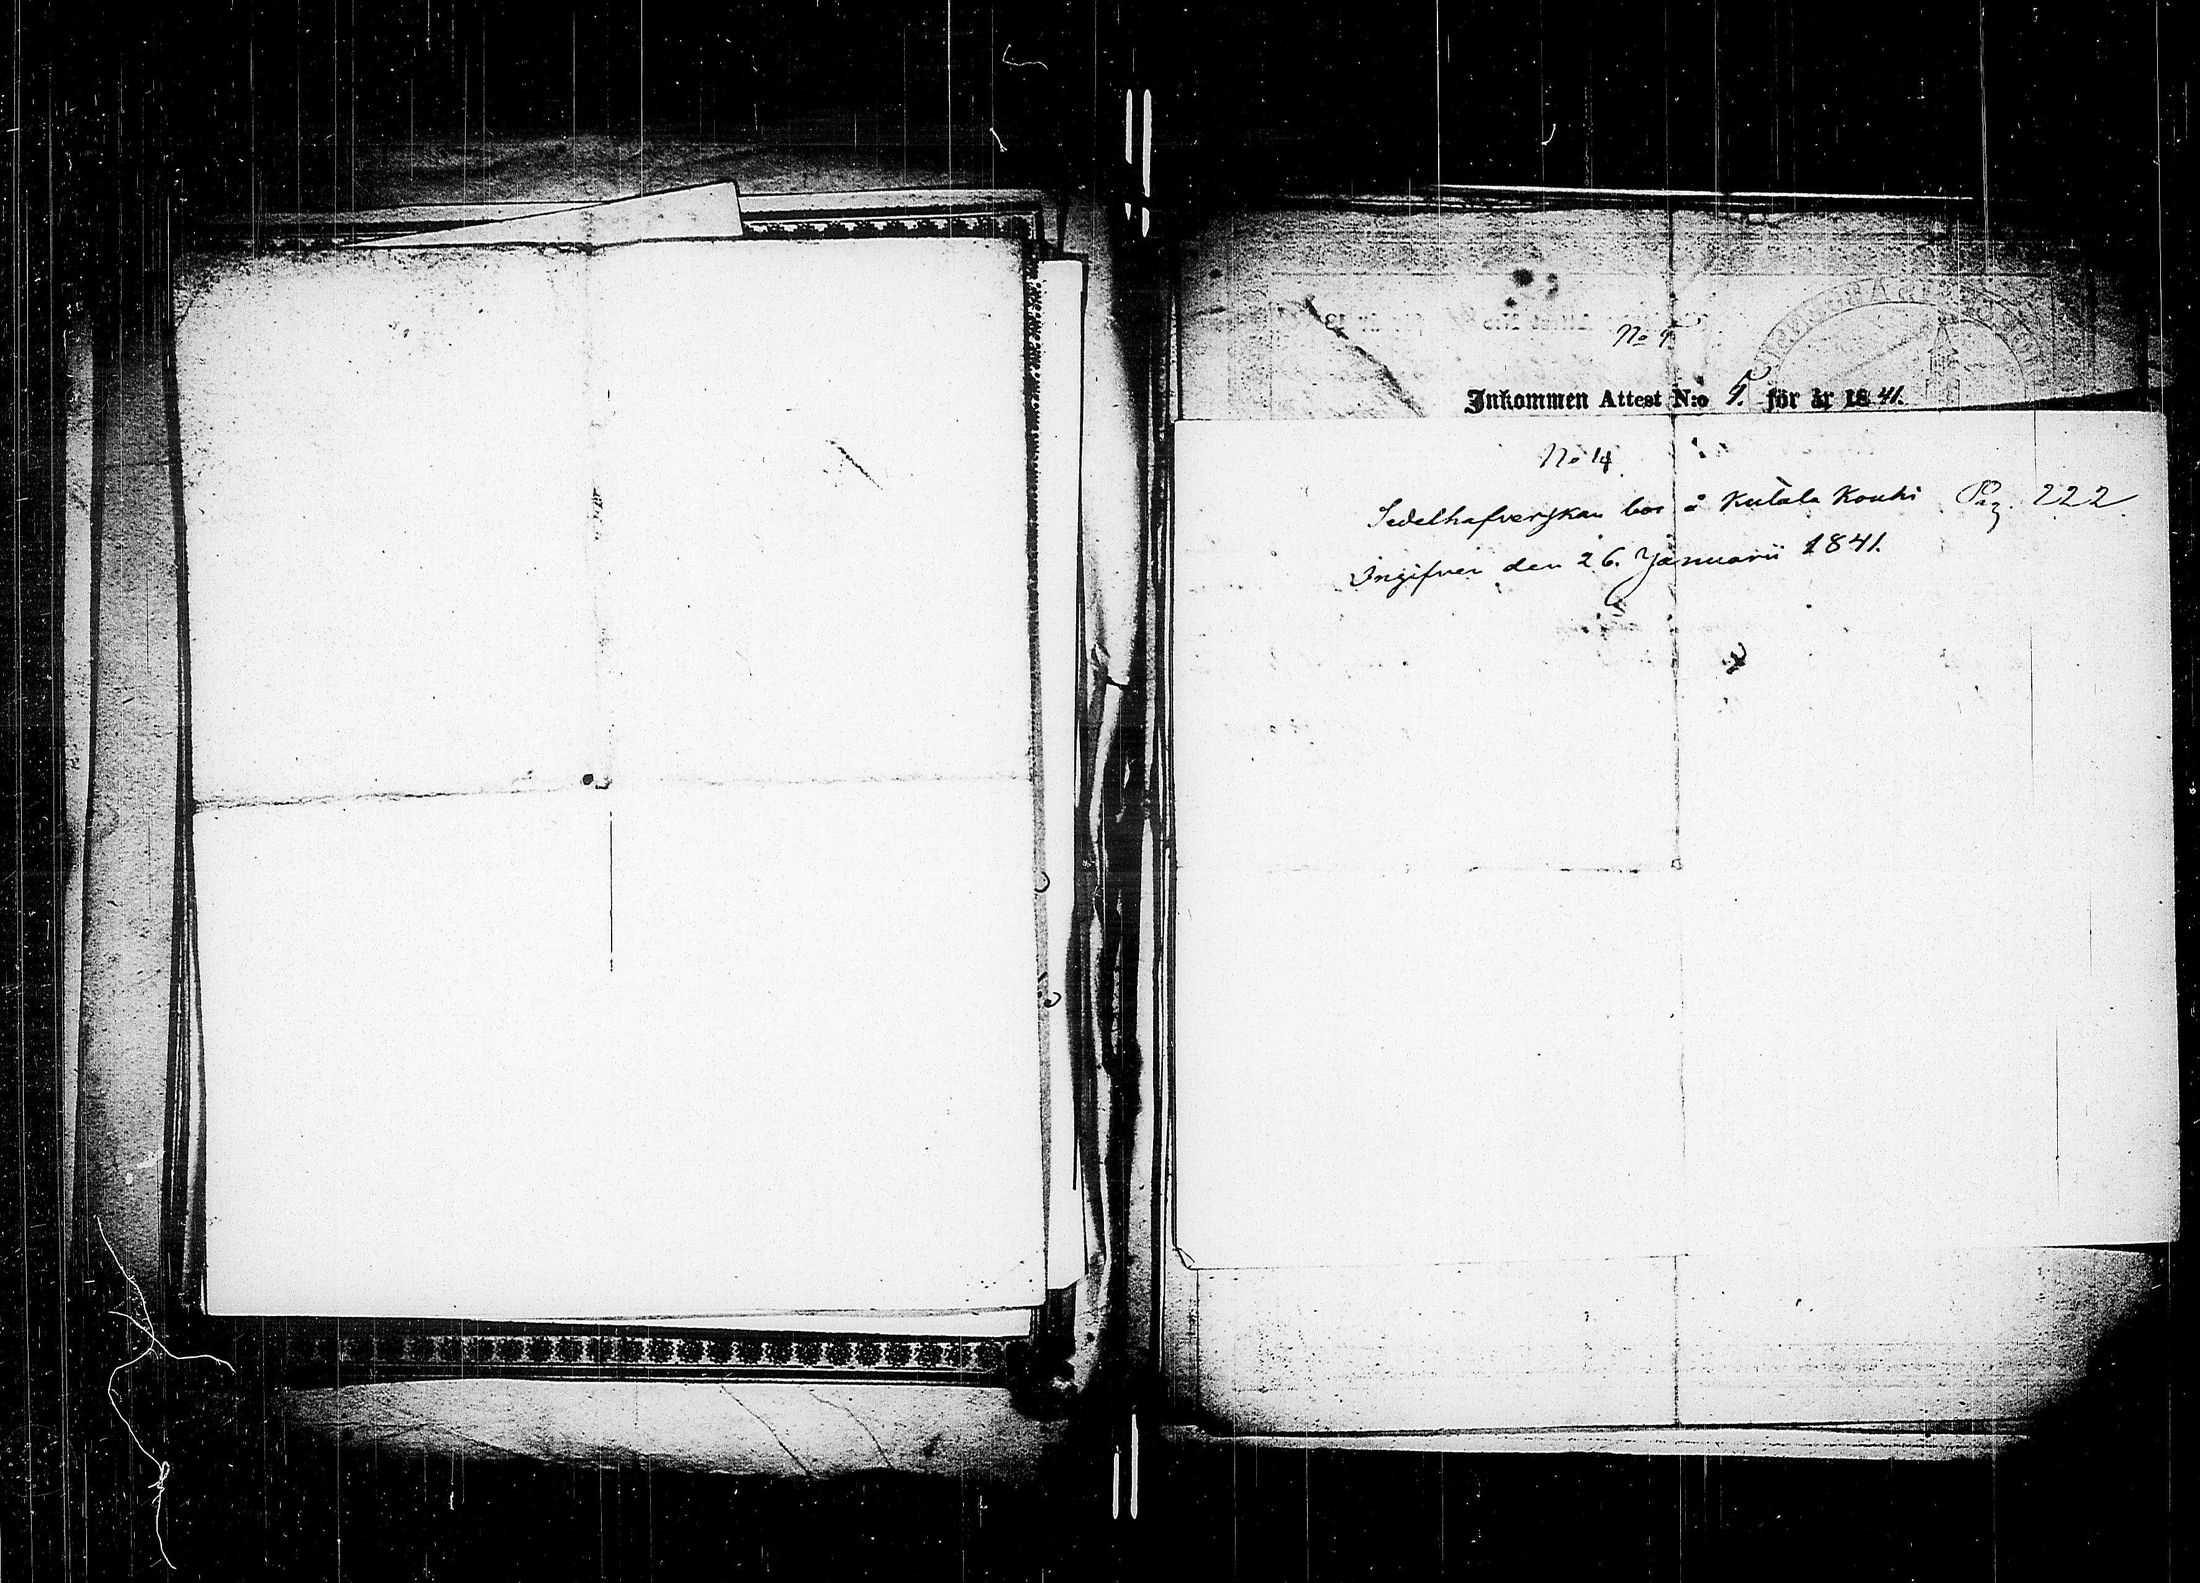 No 9
Inkommen Attest N:o 9. för år 1841.
No 14
Sedelhafverskan bor å Kutala Kouhi Pag. 222.
Ingifven den 26. Januarii 1841.